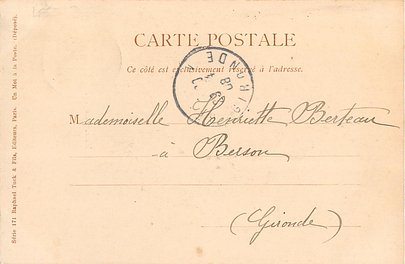 CARTE POSTALE
Ce côté est exclusivement réservé à l'adresse.
GIRONDE
Mademoiselle Henriette Berteau
à Berson
(Gironde)
Série 171 Raphael Tuck & Fils, Editeurs, Paris. Un Mot à la Poste. (Déposé).